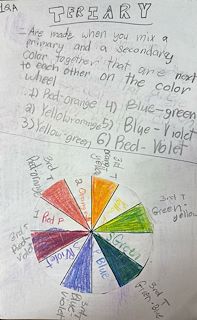 TERTIARY
- Are made when you mix a
primary and a secondary
color together that are next
to each other on the color
wheel
1) Red-orange 4) Blue-green
2) Yellow-orange 5) Blue-Violet
3) Yellow-green 6) Red-Violet
3rd T
Red-orange
3rd T
2 Orange
3rd T
Green-yellow
1 Red P
3rd T
Red-
2 Violet
2 Green
1 Blue
3rd T
Blue-violet
3rd T
Green-Blue